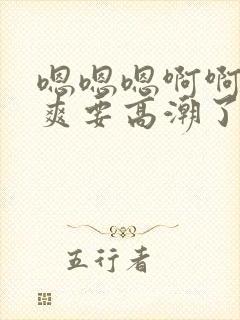 嗯嗯嗯啊啊
爽要高潮了
五行者